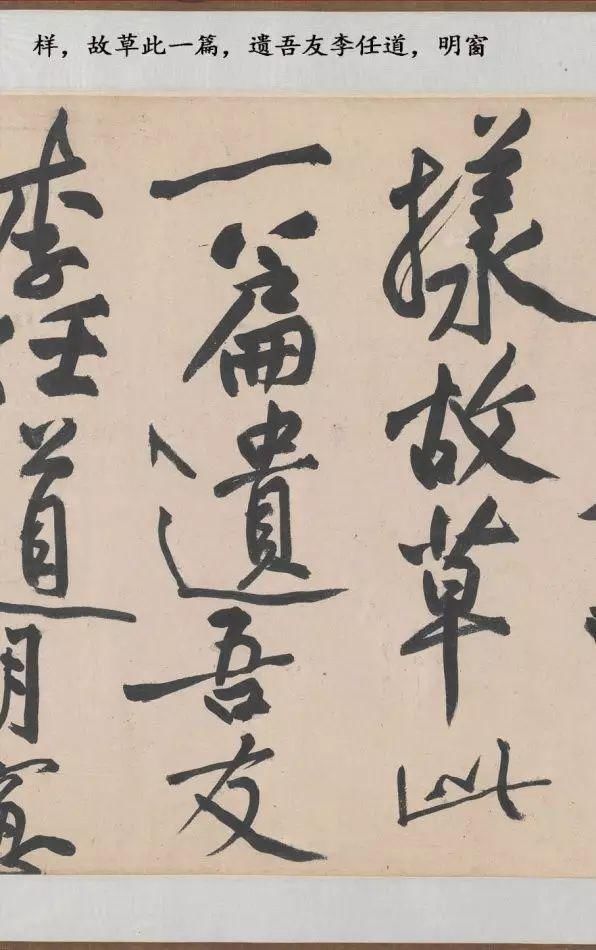 样，故草此一篇，遗吾友李任道，明窗
樣故草此
一篇遺吾友
李任道明窗